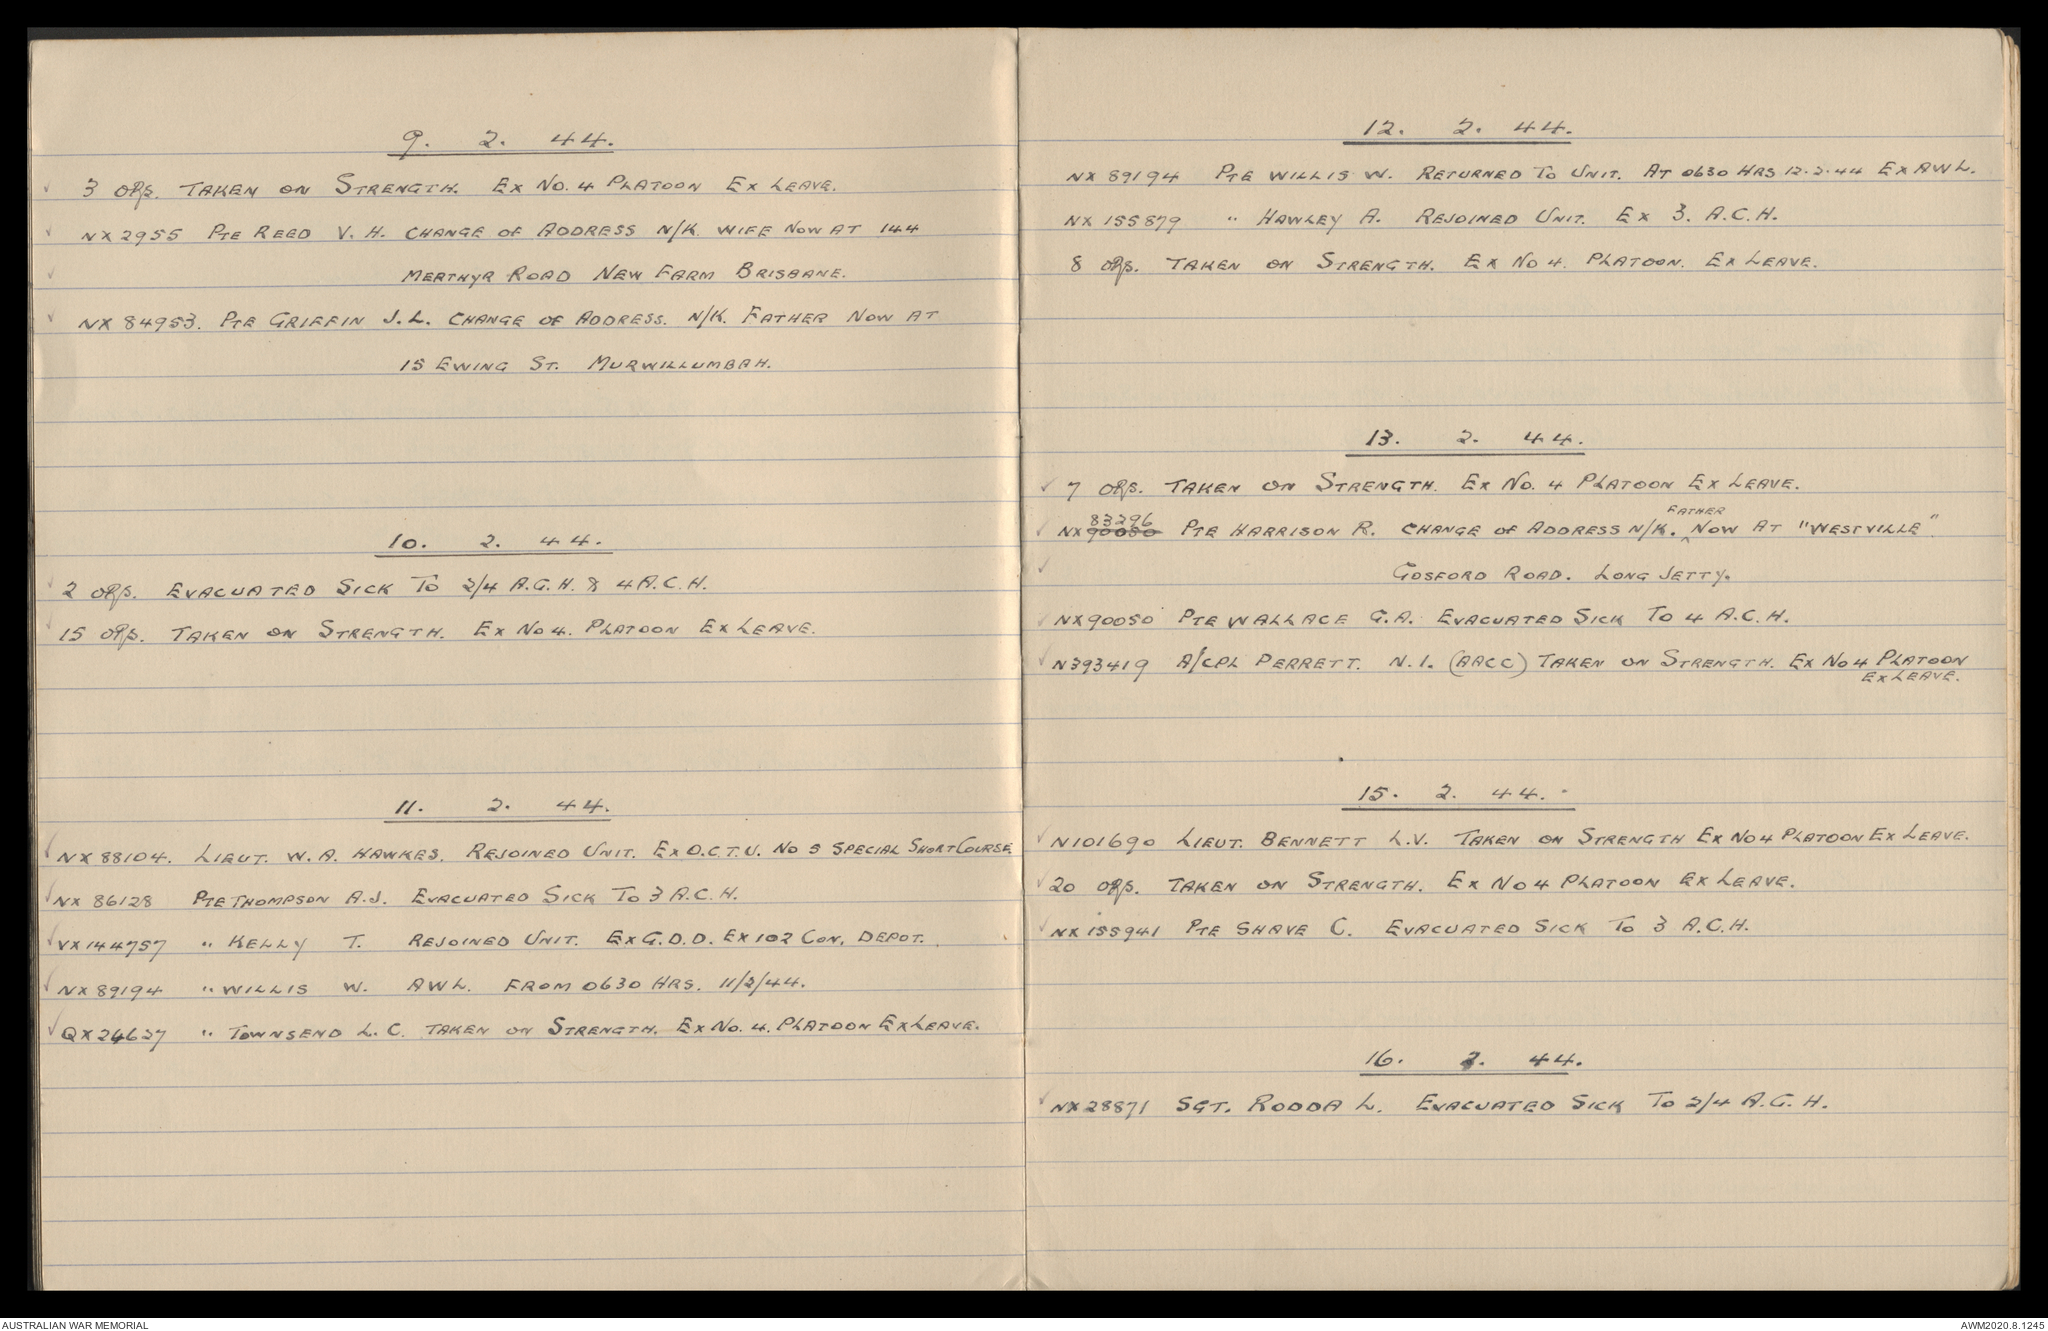 9. 2. 44.
✓ 3 ORs. TAKEN ON STRENGTH. EX NO. 4 PLATOON EX LEAVE.
✓ NX2955 PTE REED V. H. CHANGE OF ADDRESS N/K. WIFE NOW AT 144
✓ MERTHYR ROAD NEW FARM BRISBANE.
✓ NX 84953. PTE GRIFFIN J. L. CHANGE OF ADDRESS. N/K. FATHER NOW AT
15 EWING ST. MURWILLUMBAH.
10. 2. 44.
✓ 2 ORs. EVACUATED SICK TO 2/4 A.G.H. & 4 A.C.H.
✓ 15 ORs. TAKEN ON STRENGTH. EX NO 4. PLATOON EX LEAVE.
11. 2. 44.
✓ NX 88104. LIEUT. W. A. HAWKES. REJOINED UNIT. EX O.C.T.U. NO 5 SPECIAL SHORT COURSE.
✓ NX 86128 PTE THOMPSON A.J. EVACUATED SICK TO 3 A.C.H.
✓ VX144757 " KELLY T. REJOINED UNIT. EX G.D.D. EX 102 CON. DEPOT.
✓ NX 89194 " WILLIS W. AWL. FROM 0630 HRS. 11/2/44.
✓ QX24627 " TOWNSEND L. C. TAKEN ON STRENGTH. EX NO. 4. PLATOON EX LEAVE.
12. 2. 44.
NX 89194 PTE WILLIS W. RETURNED TO UNIT. AT 0630 HRS 12.2.44 EX AWL.
NX 155879 " HAWLEY A. REJOINED UNIT. EX 3. A.C.H.
8 ORs. TAKEN ON STRENGTH. EX NO 4. PLATOON. EX LEAVE.
13. 2. 44.
✓ 7 ORs. TAKEN ON STRENGTH. EX NO. 4 PLATOON EX LEAVE.
83296 FATHER
✓ NX 90050 PTE HARRISON R. CHANGE OF ADDRESS N/K. ^ NOW AT "WESTVILLE"
✓ GOSFORD ROAD. LONG JETTY.
✓ NX90050 PTE WALLACE G.A. EVACUATED SICK TO 4 A.C.H.
✓ N393419 A/CPL PERRETT. N. I. (AACC) TAKEN ON STRENGTH. EX NO 4 PLATOON
EX LEAVE.
15. 2. 44.
✓ N101690 LIEUT. BENNETT L.V. TAKEN ON STRENGTH EX NO 4 PLATOON EX LEAVE.
✓ 20 ORs. TAKEN ON STRENGTH. EX NO 4 PLATOON EX LEAVE.
✓ NX 155941 PTE SHAVE C. EVACUATED SICK TO 3 A.C.H.
16. 2. 44.
✓ NX28871 SGT. RODDA L. EVACUATED SICK TO 2/4 A.G.H.
AUSTRALIAN WAR MEMORIAL
AWM2020.8.1245